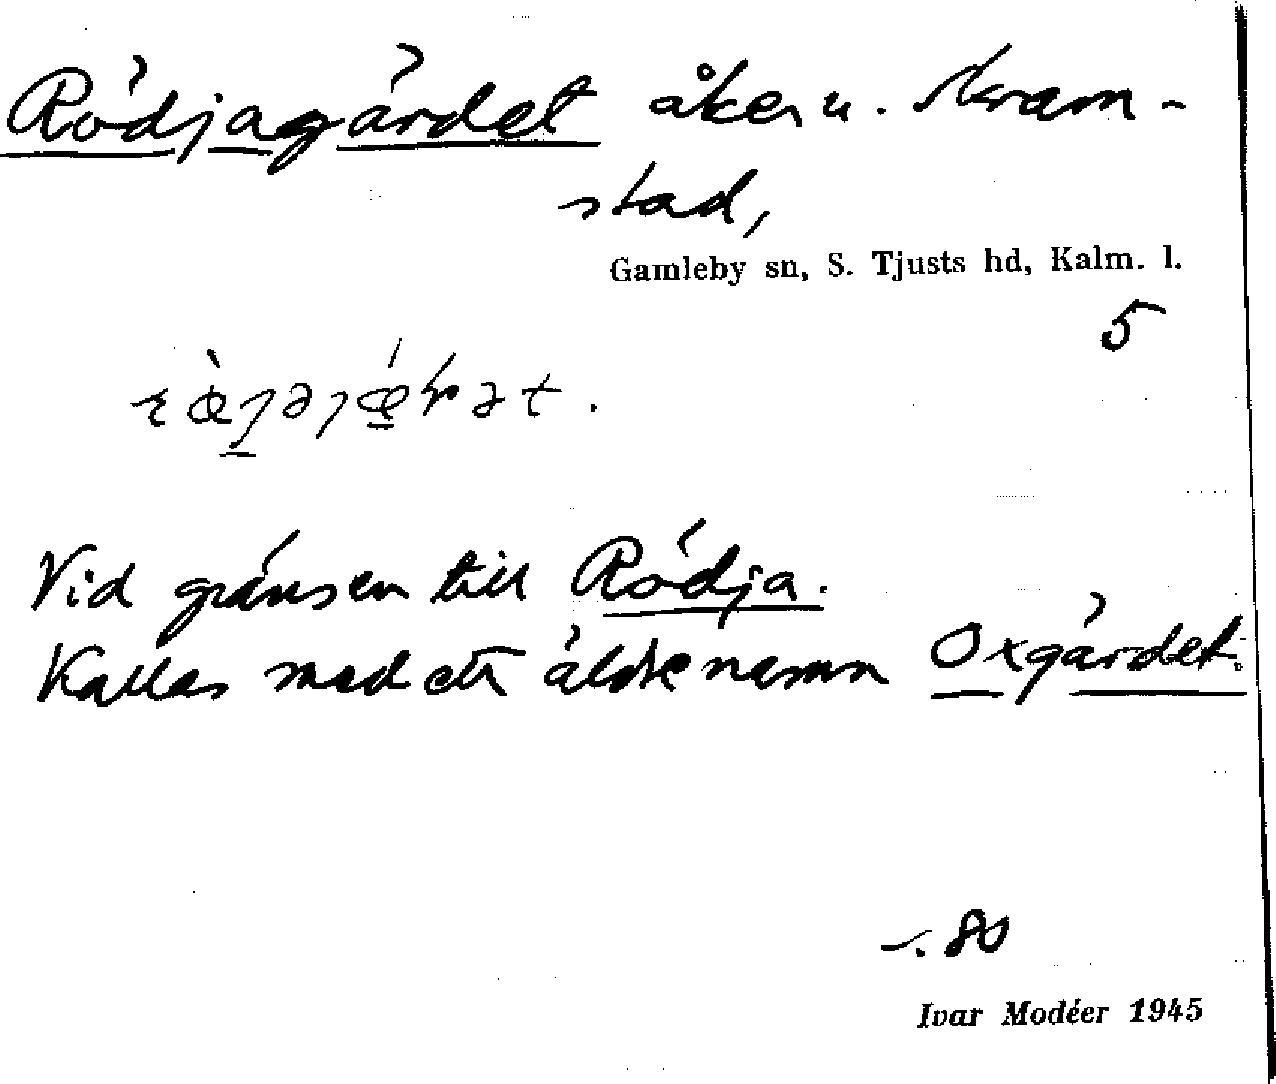 Rödjagärdet åker u. Kram-
stad,
Gamleby sn, S. Tjusts hd, Kalm. l.
5
Vid gränsen till Rödja.
Kallas med ett äldre namn Oxgärdet.
80
Ivar Modéer 1945